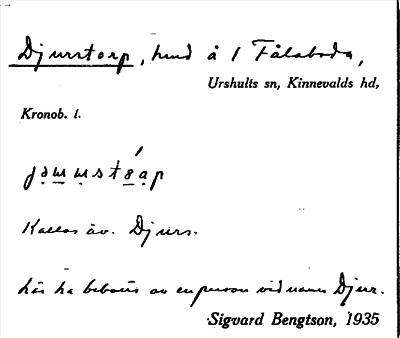 Djurstorp, hmd å 1 Fålaboda,
Urshults sn, Kinnevalds hd,
Kronob. l.
Kallas äv. Djurs.
bebotts av en person vid namn Djur.
Sigvard Bengtson, 1935